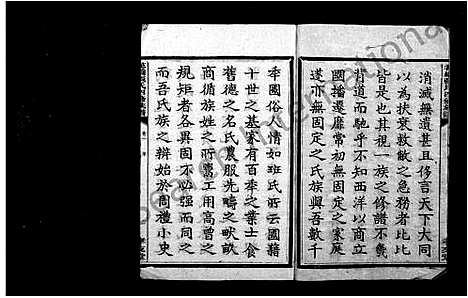 消滅無遺甚且侈言天下大同
以為扶衰救敝之急務者比比
皆是也其視一族之修譜不幾
背道而馳乎不知西洋以商立
國播遷靡常初無固定之家庭
遂亦無固定之氏族與吾數千
年國俗人情如班氏所云國籍
十世之基家有百年之業士食
舊德之名氏農服先疇之畎畝
商循族姓之所鬻工用高曾之
規矩者各異固不必強而同之
而吾氏族之辨始於周禮小史